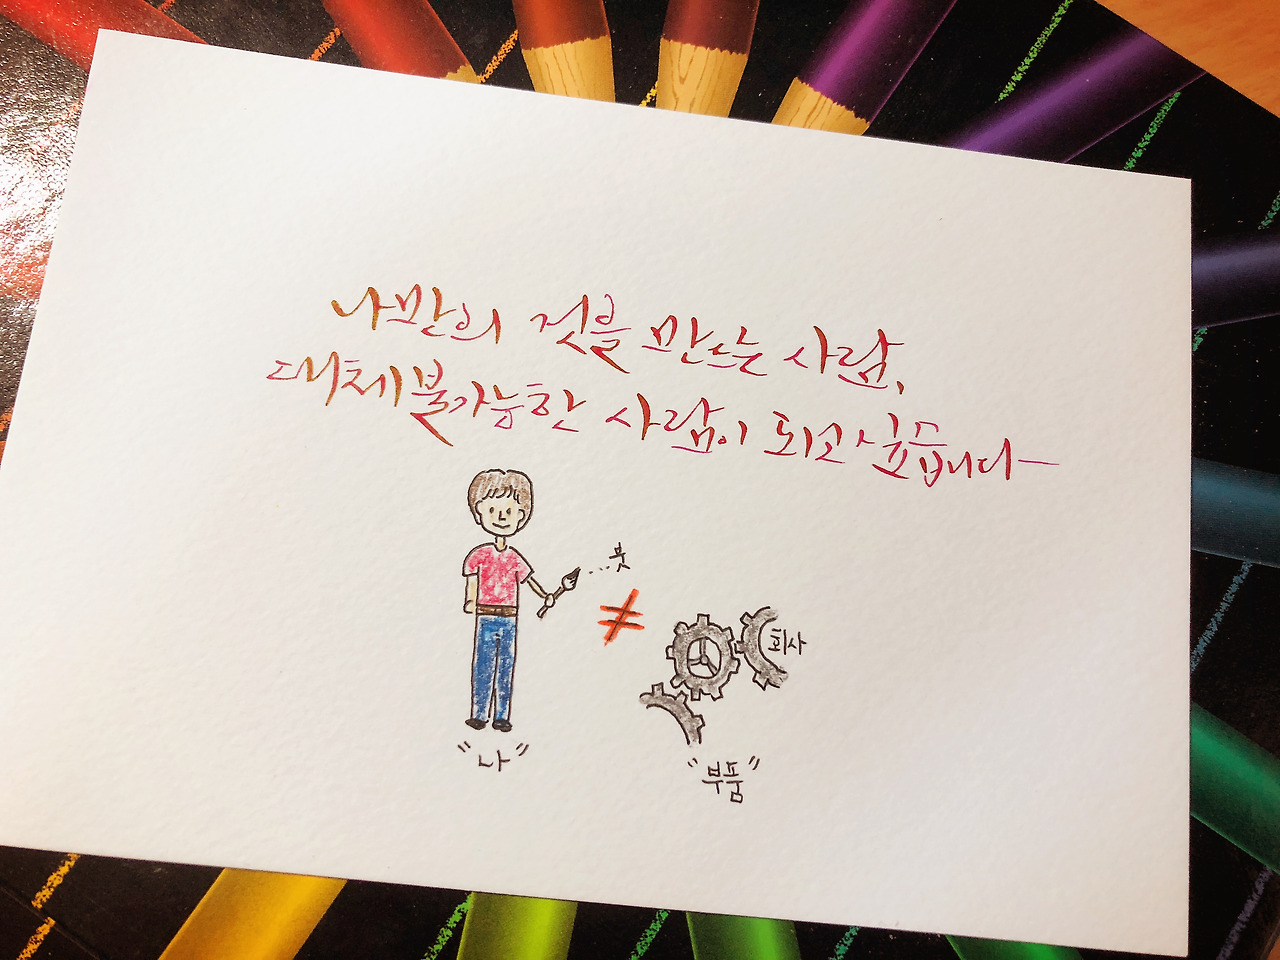 나만의 것을 만드는 사람,
대체불가능한 사람이 되고 싶습니다
붓
≠
회사
"나"
"부품"